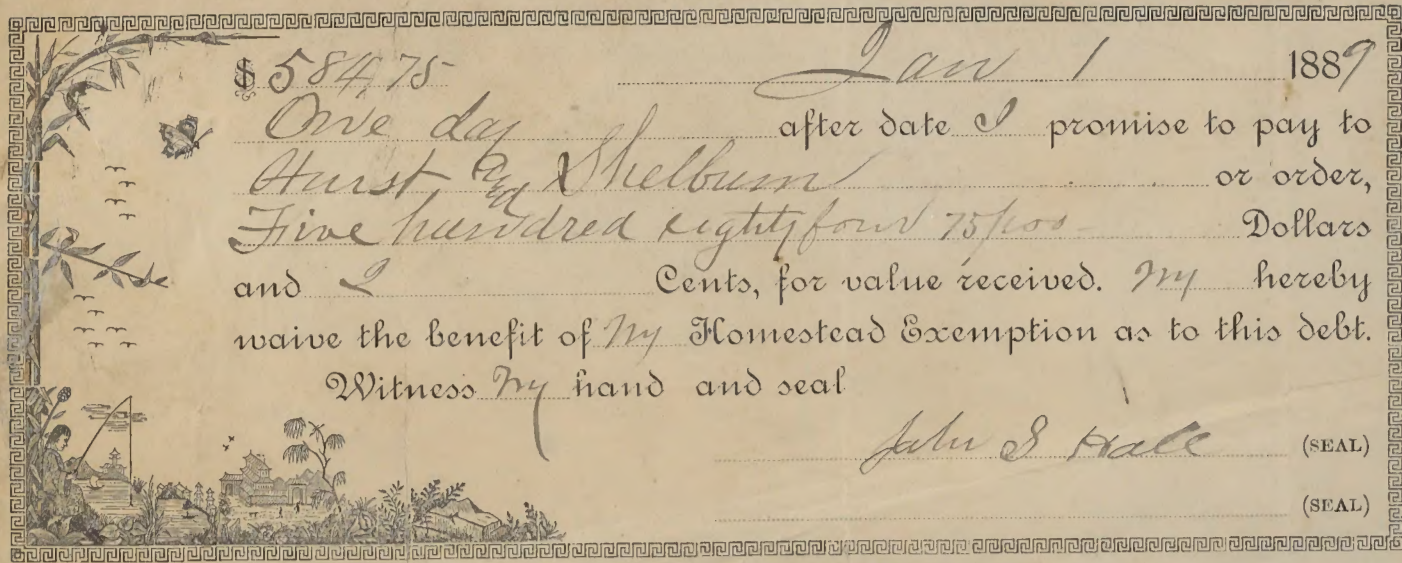 $ 584,75 Jan 1 1889
One day after date I promise to pay to
Hurst and Shelburn or order,
Five hundred eighty four 75/100 Dollars
and Cents, for value received. My hereby
waive the benefit of My Homestead Exemption as to this debt.
Witness My hand and seal
John S Hale (SEAL)
(SEAL)